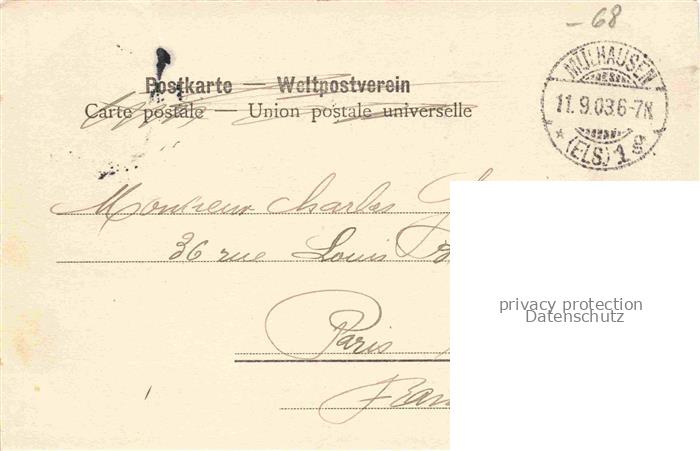 -68
Postkarte — Weltpostverein
Carte postale — Union postale universelle
MÜLHAUSEN
11.9.03.6-7N
* (ELS) 1 g
Monsieur Charles
36 rue Louis
Paris
privacy protection
Datenschutz